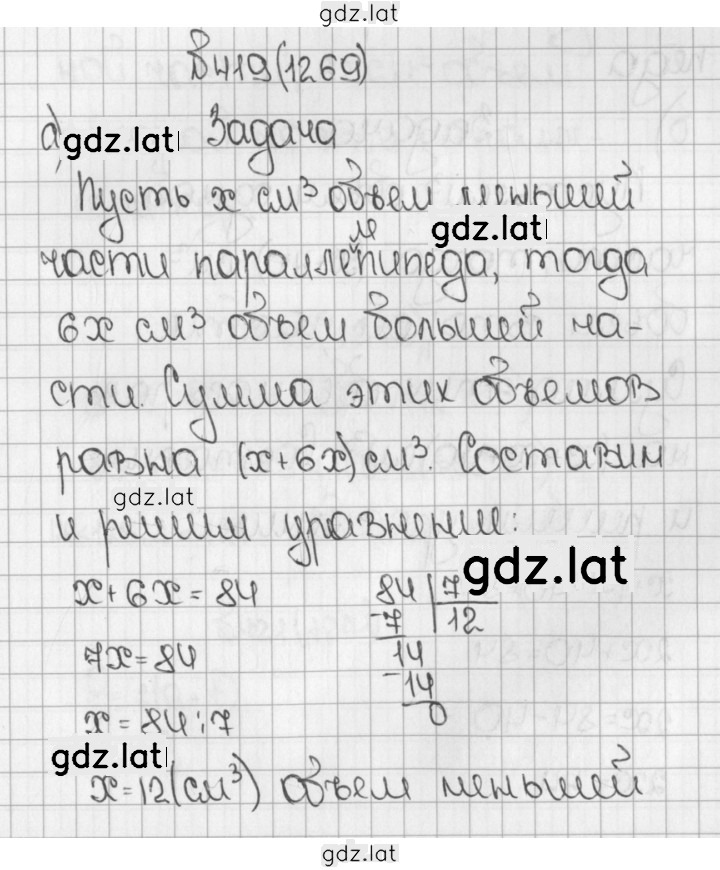 gdz.lat
В 419 (1269)
а) gdz.lat Задача
Пусть x см³ объем меньшей
gdz.lat
части параллелепипеда, тогда
6x см³ объем большей ча-
сти. Сумма этих объемов
равна (x+6x) см³. Составим
gdz.lat
и решим уравнение:
gdz.lat
x+6x=84 84 | 7
-7 12
7x=84 14
-14
x=84:7 0
gdz.lat
x=12(см³) объем меньшей
gdz.lat